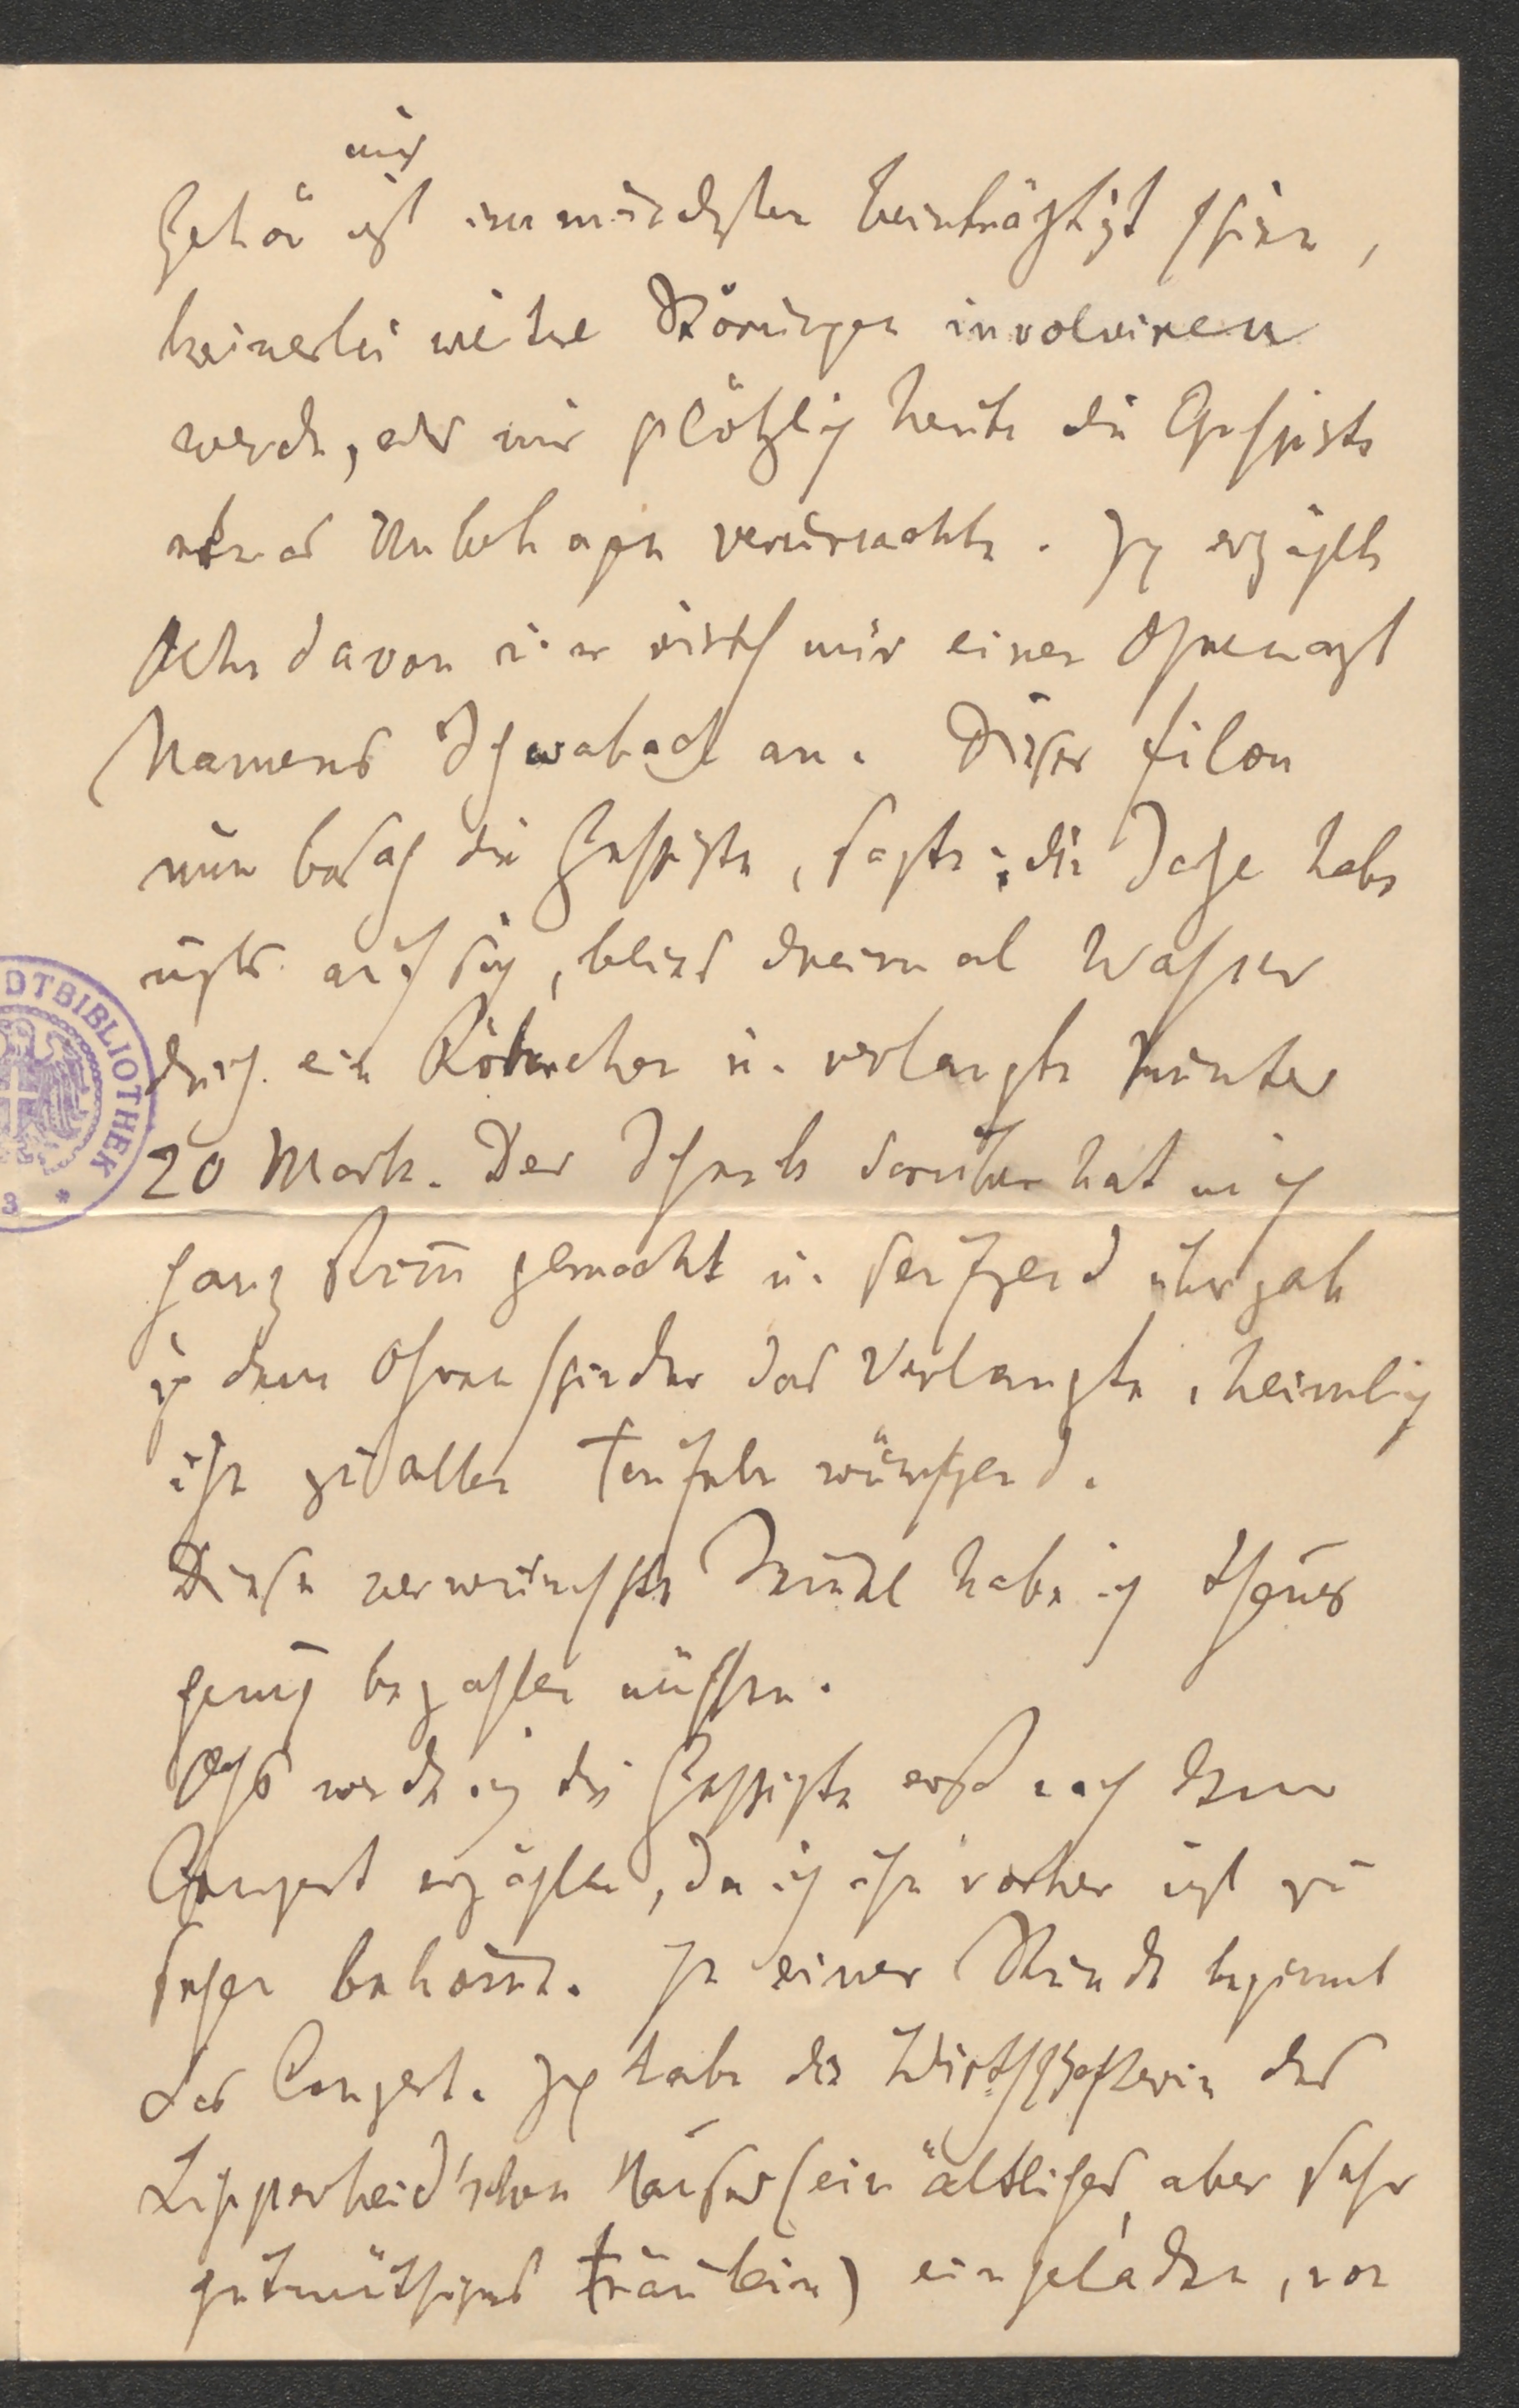 mir
Gehör nicht im mindesten beeinträchtigt schien,
keinerlei weitere Störungen involviren
werde, als mir plötzlich heute die Geschichte
etwas Unbehagen verursachte. Ich erzählte
davon u. er rieth mir einen Ohrenarzt
Namens Schwabach an. Dieser filou
nun besah die Geschichte, sagte: die Sache habe
nichts auf sich, blies dreimal Wasser
durch ein Röhrchen u. verlangte munter
20 Mark. Der Schreck darüber hat mich
ganz stumm gemacht u. seufzend übergab
ich dem Ohrenschinder das Verlangte, heimlich
ihn zu allen Teufeln wünschend.
Diese verwünschte Sache habe ich theuer
genug bezahlen müssen.
Ochs werde ich die Geschichte erst nach dem
Conzert erzählen, da ich ihn vorher nicht zu
sehen bekomme. In einer Stunde beginnt
das Conzert. Ich habe die Wirthschafterin des
Lipperheid'schen Hauses (ein ältliches, aber sehr
gutmüthiges Fräulein) eingeladen, von
DTBIBLIOTHEK
3 *